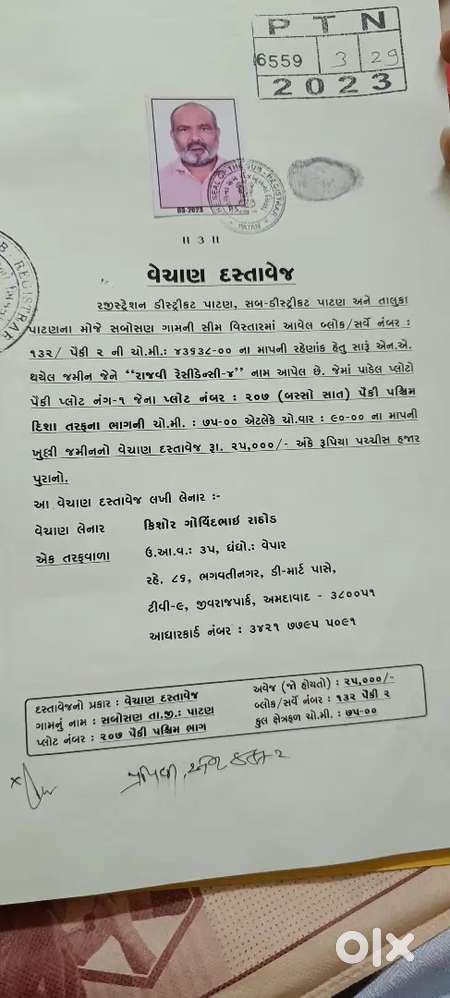 P T N
6559 3 29
2023
03-2023
SEAL OF THE SUB-REGISTRAR
PATAN
॥ 3 ॥
વેચાણ દસ્તાવેજ
રજીસ્ટ્રેશન ડીસ્ટ્રીકટ પાટણ, સબ-ડીસ્ટ્રીકટ પાટણ અને તાલુકા
પાટણના મોજે સબોસણ ગામની સીમ વિસ્તારમાં આવેલ બ્લોક/સર્વે નંબર :
૧૩૨/ પૈકી ૨ ની ચો.મી.: ૪૩૬૩૮-૦૦ ના માપની રહેણાંક હેતુ સારૂં એન.એ.
થયેલ જમીન જેને “રાજવી રેસીડેન્સી-૪” નામ આપેલ છે. જેમાં પાડેલ પ્લોટો
પૈકી પ્લોટ નંગ-૧ જેના પ્લોટ નંબર : ૨૦૭ (બસ્સો સાત) પૈકી પશ્ચિમ
દિશા તરફના ભાગની ચો.મી. : ૭૫-૦૦ એટલેકે ચો.વાર : ૯૦-૦૦ ના માપની
ખુલ્લી જમીનનો વેચાણ દસ્તાવેજ રૂા. ૨૫,૦૦૦/- અંકે રૂપિયા પચ્ચીસ હજાર
પુરાનો.
આ વેચાણ દસ્તાવેજ લખી લેનાર :-
વેચાણ લેનાર કિશોર ગોવિંદભાઇ રાઠોડ
એક તરફવાળા ઉ.આ.વ.: ૩૫, ધંધો.: વેપાર
રહે. ૮૬, ભગવતીનગર, ડી-માર્ટ પાસે,
ટીવી-૯, જીવરાજપાર્ક, અમદાવાદ - ૩૮૦૦૫૧
આધારકાર્ડ નંબર : ૩૪૨૧ ૭૭૯૫ ૫૦૯૧
દસ્તાવેજનો પ્રકાર : વેચાણ દસ્તાવેજ અવેજ (જો હોયતો) : ૨૫,૦૦૦/-
ગામનું નામ : સબોસણ તા.જી.: પાટણ બ્લોક/સર્વે નંબર : ૧૩૨ પૈકી ૨
પ્લોટ નંબર : ૨૦૭ પૈકી પશ્ચિમ ભાગ કુલ ક્ષેત્રફળ ચો.મી. : ૭૫-૦૦
olx